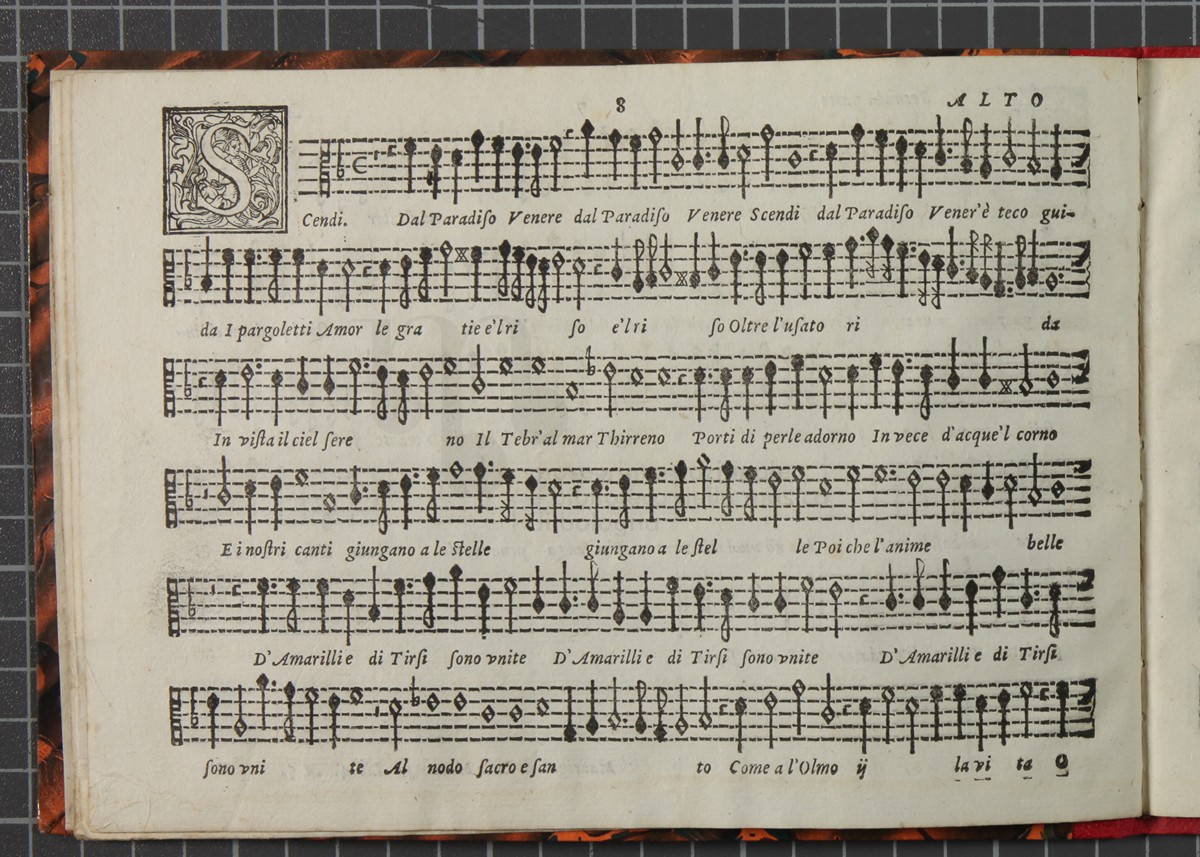 8
ALTO
SCendi. Dal Paradiſo Venere dal Paradiſo Venere Scendi dal Paradiſo Vener'è teco gui-
da I pargoletti Amor le gra tie e'l ri ſo e'l ri ſo Oltre l'uſato ri da
In viſta il ciel ſere no Il Tebr'al mar Thirreno Porti di perle adorno In vece d'acque'l corno
E i noſtri canti giungano a le ſtelle giungano a le ſtel le Poi che l'anime belle
D'Amarilli e di Tirſi ſono vnite D'Amarilli e di Tirſi ſono vnite D'Amarilli e di Tirſi
ſono vni te Al nodo ſacro e ſan to Come a l'Olmo ij la vi ta O